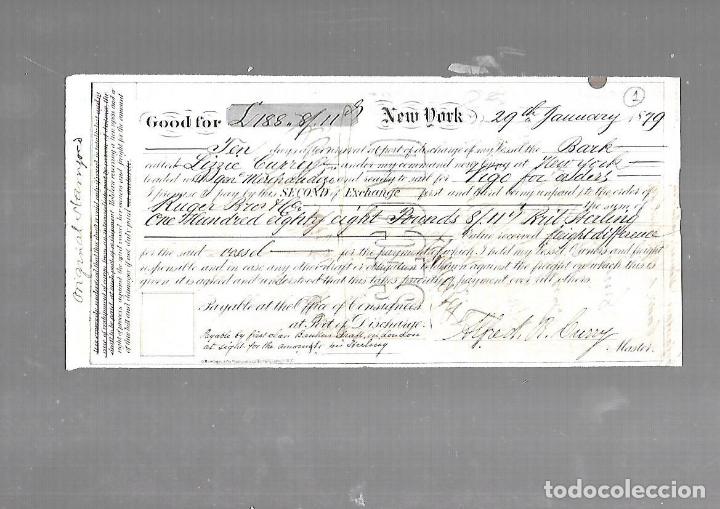 Good for £188. 8/. 11d New York, 29th January 1879
1
Ten days after arrival at port of discharge of my Vessel the Bark
called Lizzie Curry under my command now lying at New York
loaded with Merchandize and ready to sail for Vigo for orders
I promise to pay by this SECOND of Exchange first and third being unpaid to the order of
Ruger Bros & Co the sum of
One Hundred Eighty eight Pounds 8/11d Brit. Sterling
value received freight difference
for the said vessel for the payment of which I hold my Vessel Owners and freight
responsible and in case any other draft or obligation be drawn against the freight on which this is
given it is agreed and understood that this takes priority of payment over all others.
Payable at the Office of Consignees
at Port of Discharge.
Payable by first class Bankers Draft on London
at sight for the amount in Sterling
Alfred R. Curry
Master.
Original Stamped
todocoleccion.net